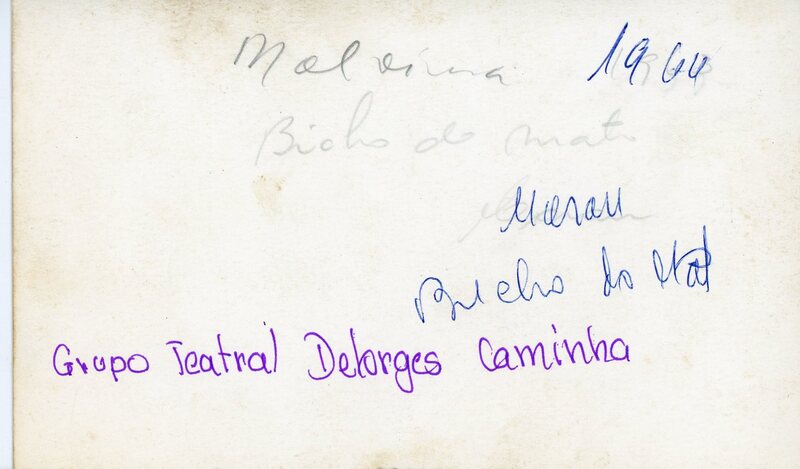 Malvina 1964
Bicho do mato
Bicho do Mat
Grupo Teatral Delorges Caminha